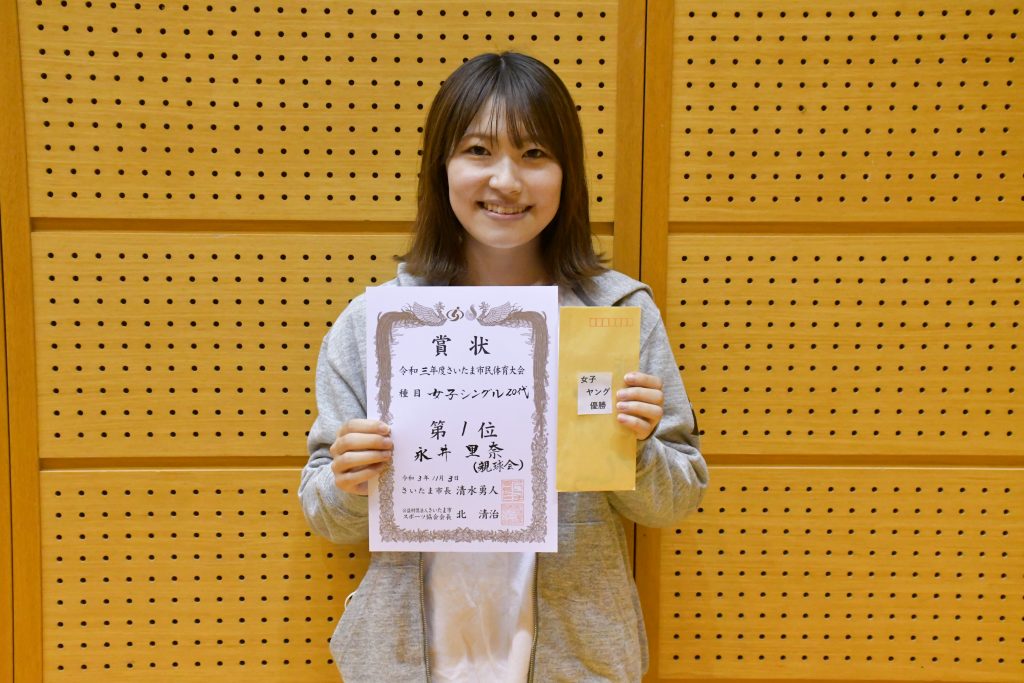 賞状
令和三年度さいたま市民体育大会
種目 女子シングル20代
第1位
永井里奈
(親球会)
令和3年11月3日
さいたま市長 清水勇人
公益財団法人さいたま市
スポーツ協会会長 北 清治
女子
ヤング
優勝